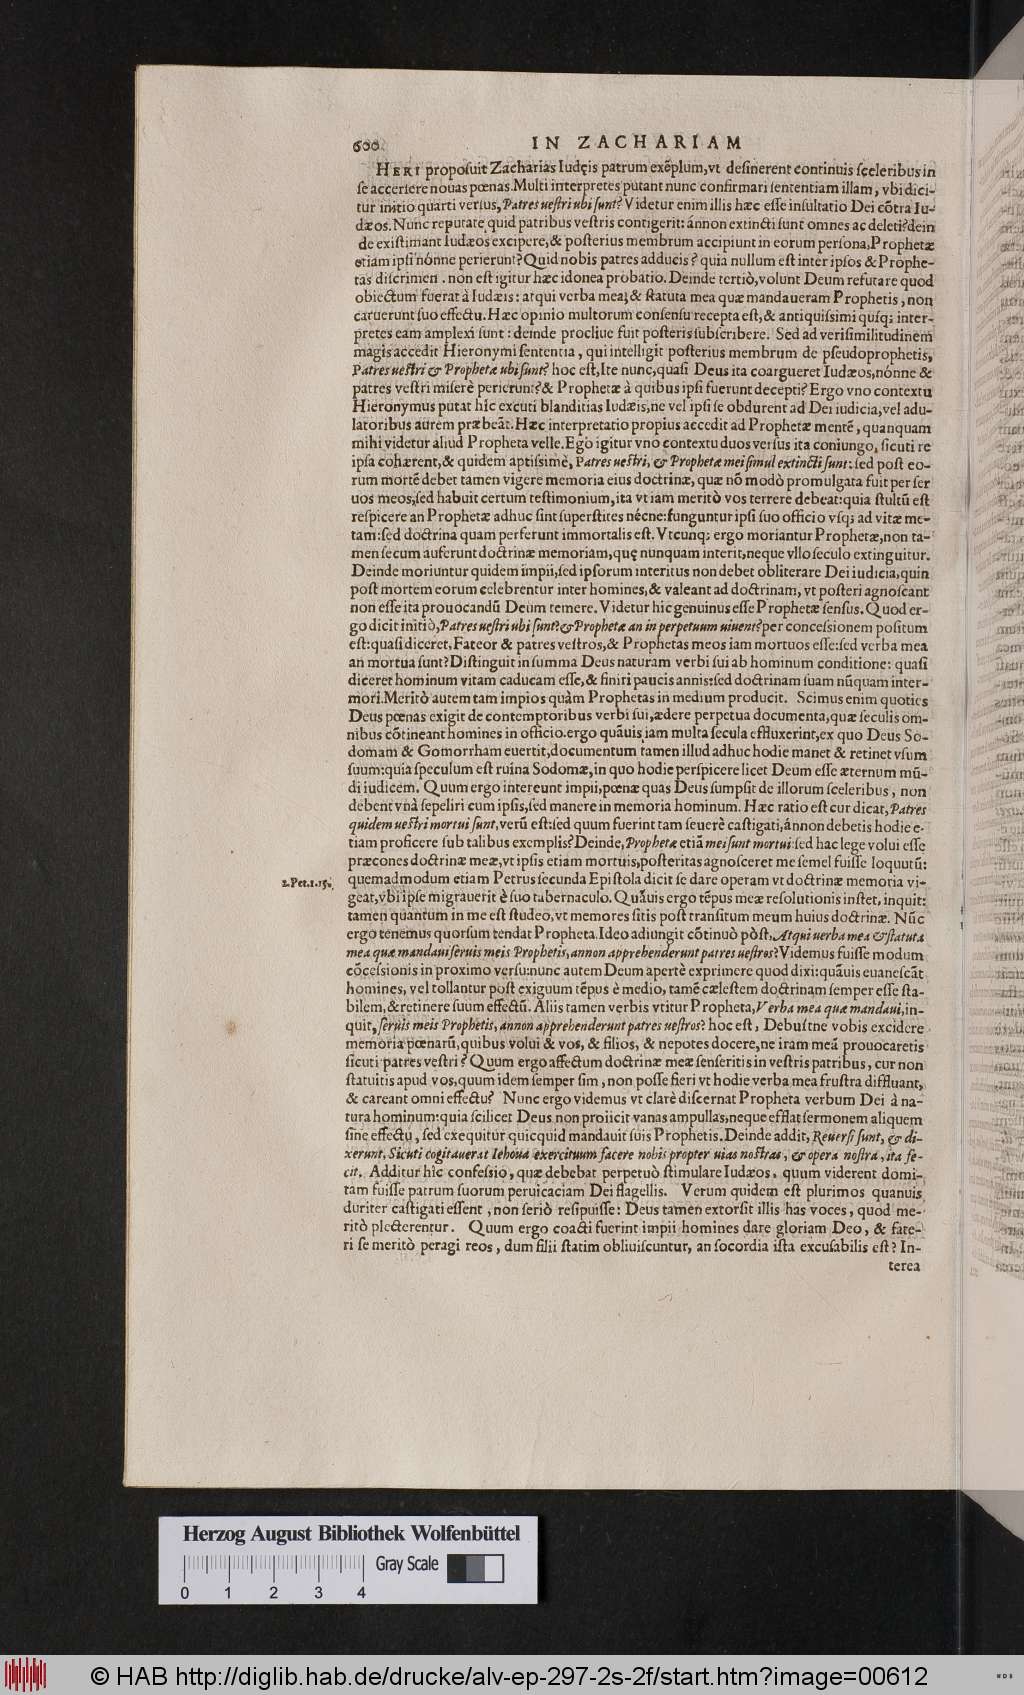 600 IN ZACHARIAM
HERI propoſuit Zacharias Iudęis patrum exẽplum, vt deſinerent continuis ſceleribus in
ſe accerſere nouas pœnas. Multi interpretes putant nunc confirmari ſententiam illam, vbi dici-
tur initio quarti verſus, Patres ueſtri ubi ſunt? Videtur enim illis hæc eſſe inſultatio Dei cõtra Iu-
dæos. Nunc reputate quid patribus veſtris contigerit: ánnon extincti ſunt omnes ac deleti? dein
de exiſtimant Iudæos excipere, & poſterius membrum accipiunt in eorum perſona, Prophetæ
etiam ipſi nónne perierunt? Quid nobis patres adducis? quia nullum eſt inter ipſos & Prophe-
tas diſcrimen. non eſt igitur hæc idonea probatio. Deinde tertiò, volunt Deum refutare quod
obiectum fuerat à Iudæis: atqui verba mea, & ſtatuta mea quæ mandaueram Prophetis, non
caruerunt ſuo effectu. Hæc opinio multorum conſenſu recepta eſt, & antiquiſsimi quíq; inter-
pretes eam amplexi ſunt: deinde procliue fuit poſteris ſubſcribere. Sed ad veriſimilitudinem
magis accedit Hieronymi ſententia, qui intelligit poſterius membrum de pſeudoprophetis,
Patres ueſtri & Prophetæ ubi ſunt? hoc eſt, Ite nunc, quaſi Deus ita coargueret Iudæos, nónne &
patres veſtri miſerè perierunt? & Prophetæ à quibus ipſi fuerunt decepti? Ergo vno contextu
Hieronymus putat hîc excuti blanditias Iudæis, ne vel ipſi ſe obdurent ad Dei iudicia, vel adu-
latoribus aurem præbeãt. Hæc interpretatio propius accedit ad Prophetæ mentẽ, quanquam
mihi videtur aliud Propheta velle. Ego igitur vno contextu duos verſus ita coniungo, ſicuti re
ipſa cohærent, & quidem aptiſsimè, Patres ueſtri, & Prophetæ mei ſimul extincti ſunt: ſed poſt eo-
rum mortẽ debet tamen vigere memoria eius doctrinæ, quæ nõ modò promulgata fuit per ſer
uos meos, ſed habuit certum teſtimonium, ita vt iam meritò vos terrere debeat: quia ſtultũ eſt
reſpicere an Prophetæ adhuc ſint ſuperſtites nécne: funguntur ipſi ſuo officio vſq; ad vitæ me-
tam: ſed doctrina quam perferunt immortalis eſt. Vtcunq; ergo moriantur Prophetæ, non ta-
men ſecum auferunt doctrinæ memoriam, quę nunquam interit, neque vllo ſeculo extinguitur.
Deinde moriuntur quidem impii, ſed ipſorum interitus non debet obliterare Dei iudicia, quin
poſt mortem eorum celebrentur inter homines, & valeant ad doctrinam, vt poſteri agnoſcant
non eſſe ita prouocandũ Deum temere. Videtur hic genuinus eſſe Prophetæ ſenſus. Quod er-
go dicit initiò, Patres ueſtri ubi ſunt? & Prophetæ an in perpetuum uiuent? per conceſsionem poſitum
eſt: quaſi diceret, Fateor & patres veſtros, & Prophetas meos iam mortuos eſſe: ſed verba mea
an mortua ſunt? Diſtinguit in ſumma Deus naturam verbi ſui ab hominum conditione: quaſi
diceret hominum vitam caducam eſſe, & finiri paucis annis: ſed doctrinam ſuam nũquam inter-
mori. Meritò autem tam impios quàm Prophetas in medium producit. Scimus enim quoties
Deus pœnas exigit de contemptoribus verbi ſui, ædere perpetua documenta, quæ ſeculis om-
nibus cõtineant homines in officio. ergo quãuis iam multa ſecula effluxerint, ex quo Deus So-
domam & Gomorrham euertit, documentum tamen illud adhuc hodie manet & retinet vſum
ſuum: quia ſpeculum eſt ruina Sodomæ, in quo hodie perſpicere licet Deum eſſe æternum mũ-
di iudicem. Quum ergo intereunt impii, pœnæ quas Deus ſumpſit de illorum ſceleribus, non
debent vnà ſepeliri cum ipſis, ſed manere in memoria hominum. Hæc ratio eſt cur dicat, Patres
quidem ueſtri mortui ſunt, verũ eſt: ſed quum fuerint tam ſeuerè caſtigati, ánnon debetis hodie e-
tiam proficere ſub talibus exemplis? Deinde, Prophetæ etiã mei ſunt mortui: ſed hac lege volui eſſe
præcones doctrinæ meæ, vt ipſis etiam mortuis, poſteritas agnoſceret me ſemel fuiſſe loquutũ:
2. Pet. 1. 15. quemadmodum etiam Petrus ſecunda Epiſtola dicit ſe dare operam vt doctrinæ memoria vi-
geat, vbi ipſe migrauerit è ſuo tabernaculo. Quãuis ergo tẽpus meæ reſolutionis inſtet, inquit:
tamen quantum in me eſt ſtudeo, vt memores ſitis poſt tranſitum meum huius doctrinæ. Nũc
ergo tenemus quorſum tendat Propheta. Ideo adiungit cõtinuò pòſt, Atqui uerba mea & ſtatuta
mea quæ mandaui ſeruis meis Prophetis, annon apprehenderunt patres ueſtros? Videmus fuiſſe modum
cõceſsionis in proximo verſu: nunc autem Deum apertè exprimere quod dixi: quãuis euaneſcãt
homines, vel tollantur poſt exiguum tẽpus è medio, tamẽ cæleſtem doctrinam ſemper eſſe ſta-
bilem, & retinere ſuum effectũ. Aliis tamen verbis vtitur Propheta, Verba mea quæ mandaui, in-
quit, ſeruis meis Prophetis, annon apprehenderunt patres ueſtros? hoc eſt, Debuítne vobis excidere
memoria pœnarũ, quibus volui & vos, & filios, & nepotes docere, ne iram meã prouocaretis
ſicuti patres veſtri? Quum ergo affectum doctrinæ meæ ſenſeritis in veſtris patribus, cur non
ſtatuitis apud vos, quum idem ſemper ſim, non poſſe fieri vt hodie verba mea fruſtra diffluant,
& careant omni effectu? Nunc ergo videmus vt clarè diſcernat Propheta verbum Dei à na-
tura hominum: quia ſcilicet Deus non proiicit vanas ampullas, neque efflat ſermonem aliquem
ſine effectu, ſed exequitur quicquid mandauit ſuis Prophetis. Deinde addit, Reuerſi ſunt, & di-
xerunt, Sicuti cogitauerat Iehoua exercituum facere nobis propter uias noſtras, & opera noſtra, ita fe-
cit. Additur hîc confeſsio, quæ debebat perpetuò ſtimulare Iudæos, quum viderent domi-
tam fuiſſe patrum ſuorum peruicaciam Dei flagellis. Verum quidem eſt plurimos quanuis
duriter caſtigati eſſent, non ſeriò reſipuiſſe: Deus tamen extorſit illis has voces, quod me-
ritò plecterentur. Quum ergo coacti fuerint impii homines dare gloriam Deo, & fate-
ri ſe meritò peragi reos, dum filii ſtatim obliuiſcuntur, an ſocordia iſta excuſabilis eſt? In-
terea
Herzog August Bibliothek Wolfenbüttel
Gray Scale
0 1 2 3 4
© HAB http://diglib.hab.de/drucke/alv-ep-297-2s-2f/start.htm?image=00612